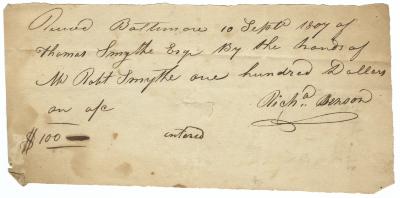 Recved Baltimore 10 Septr 1807 of
Thomas Smythe Esqr By the hands of
Mr Robt Smythe one hundred Dollars
on a/c
Richd. Benson
$ 100
entered